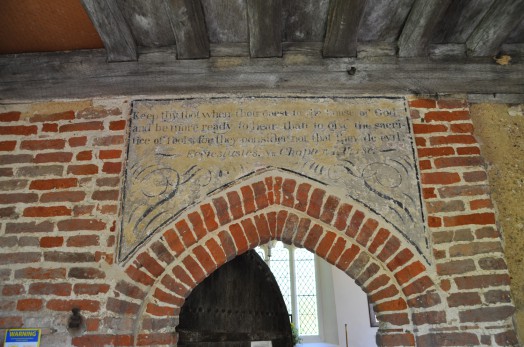 Keep thy foot when thou goest to the house of God,
and be more ready to hear than to give the sacri
fice of fools for they consider not that they do evil
Ecclesiastes, Chap
WARNING